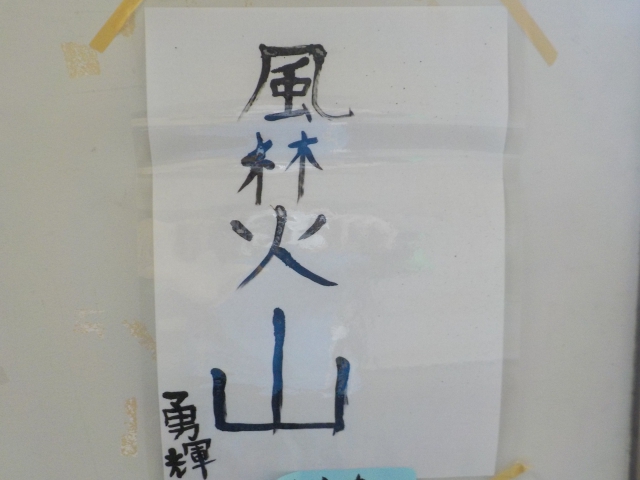 風林火山
勇輝